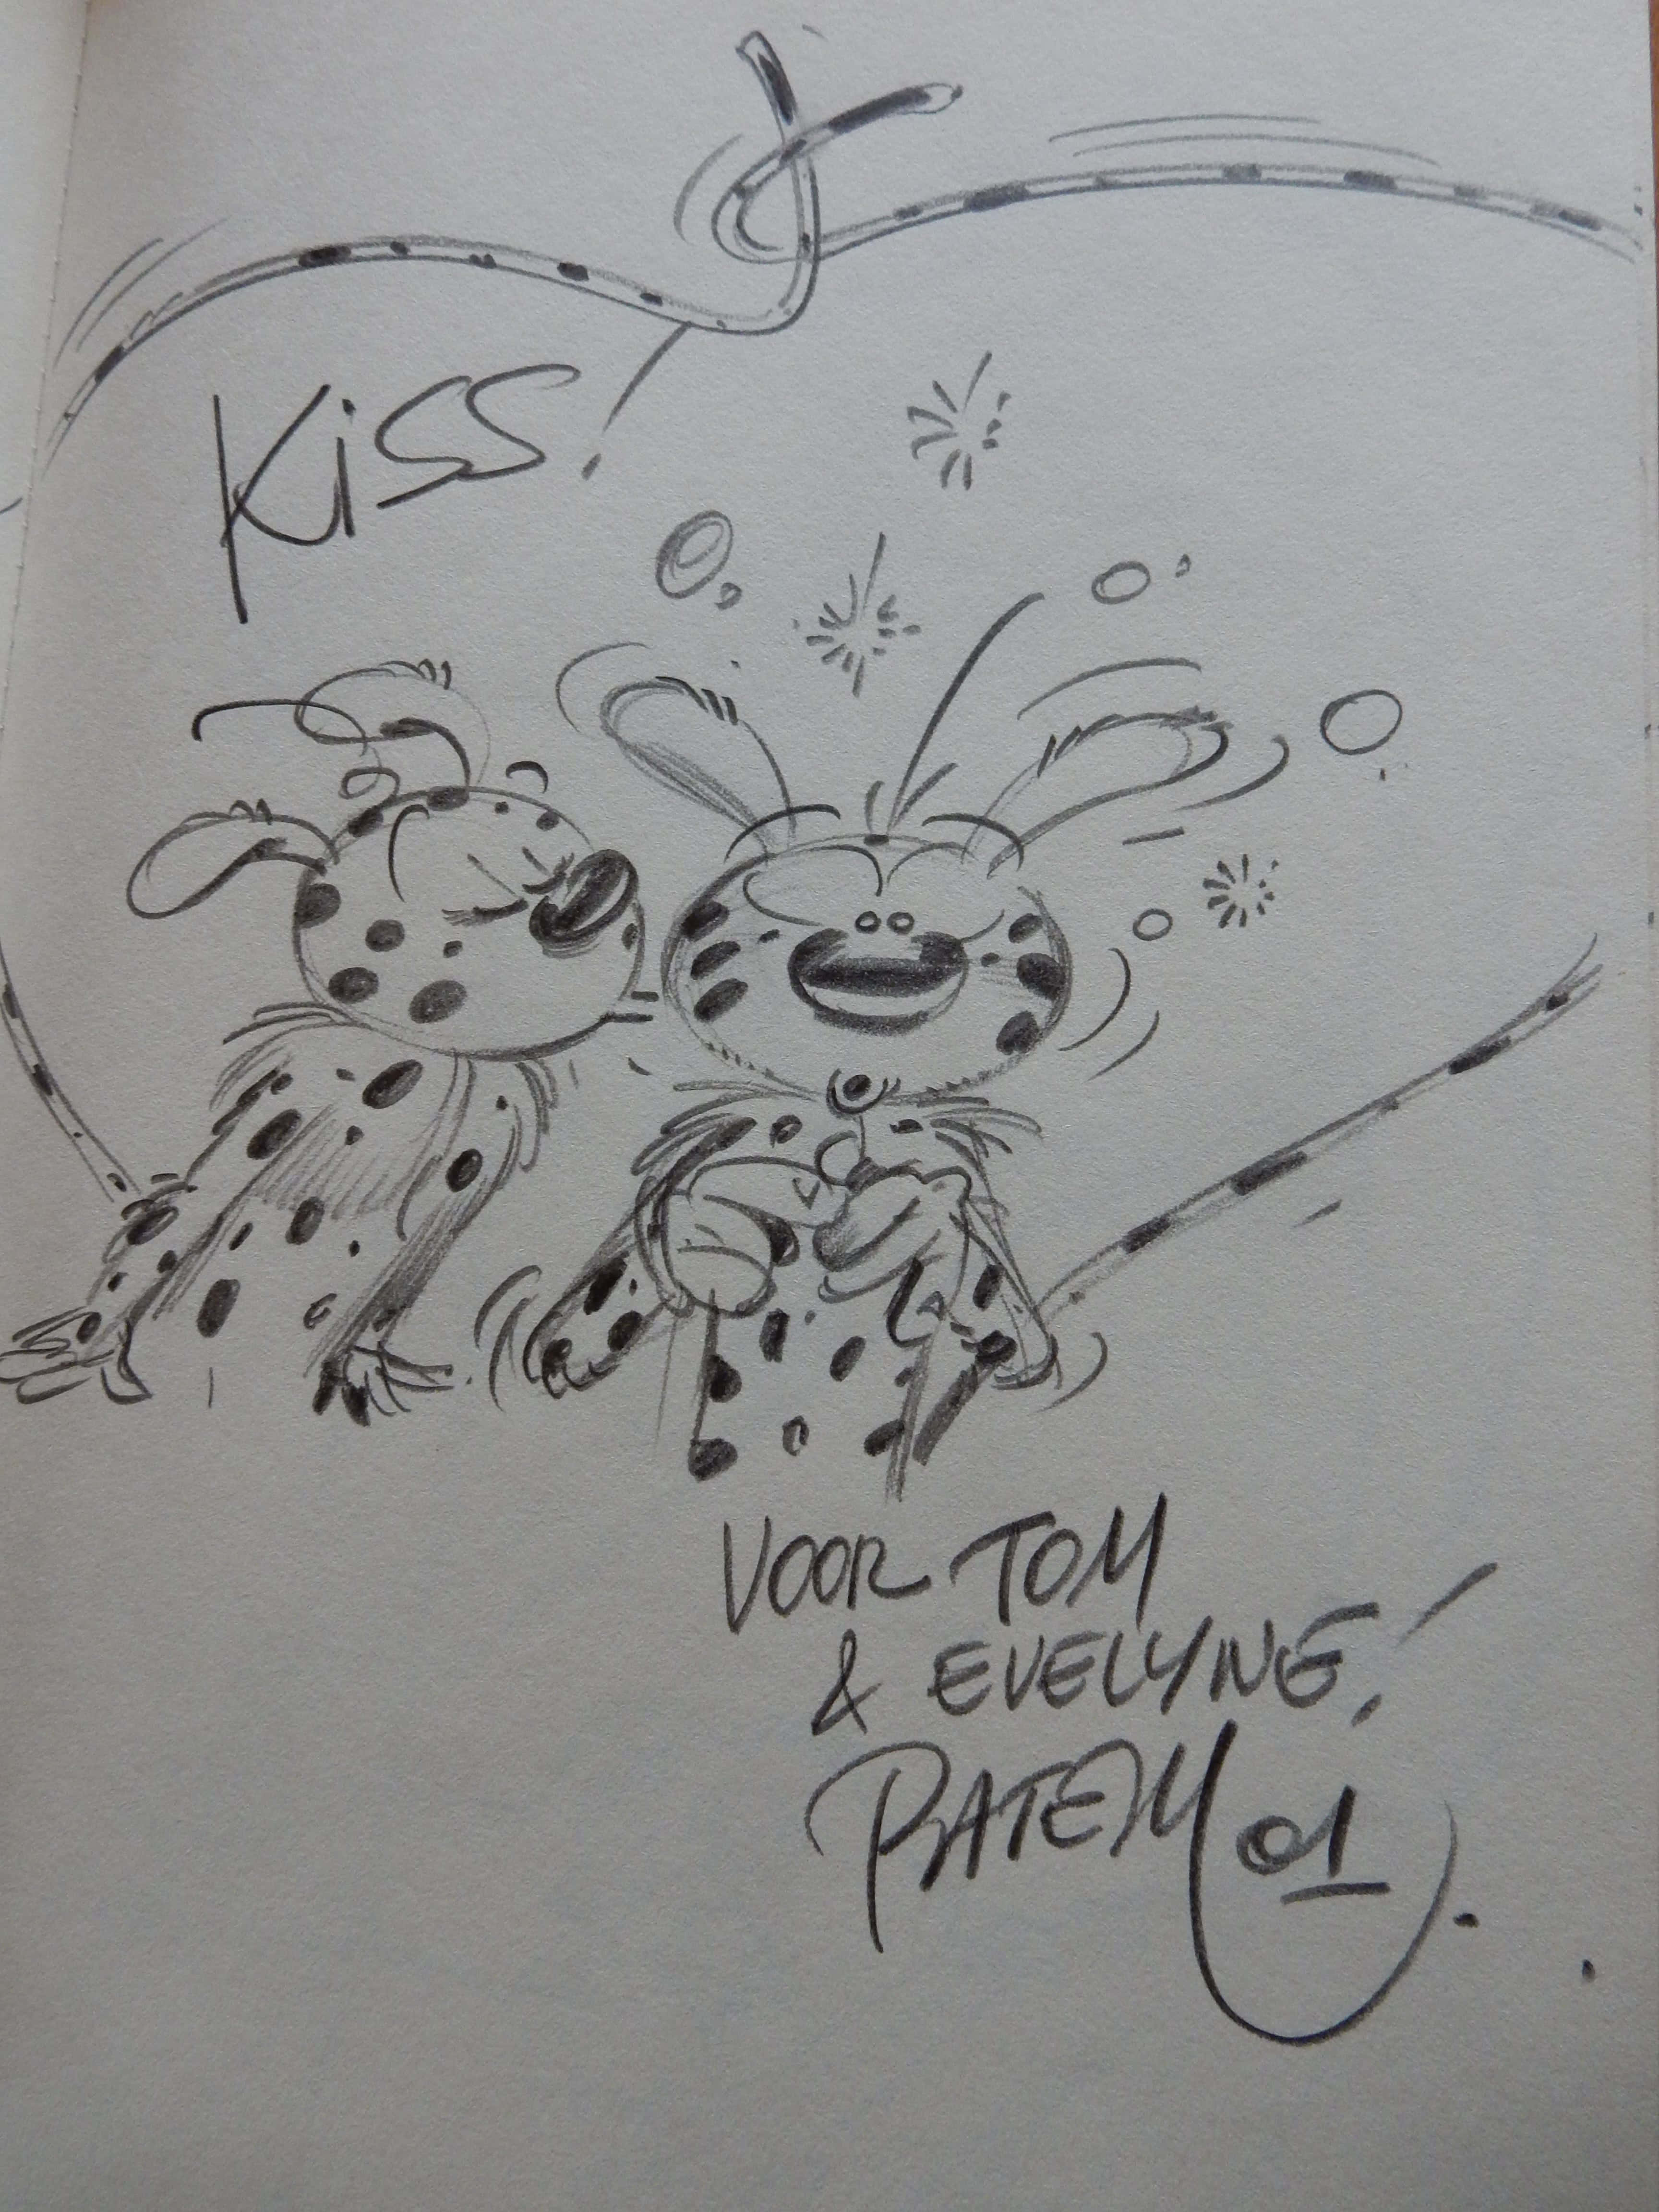 Kiss!
VOOR TOM
& EVELYNE!
BATEM 01